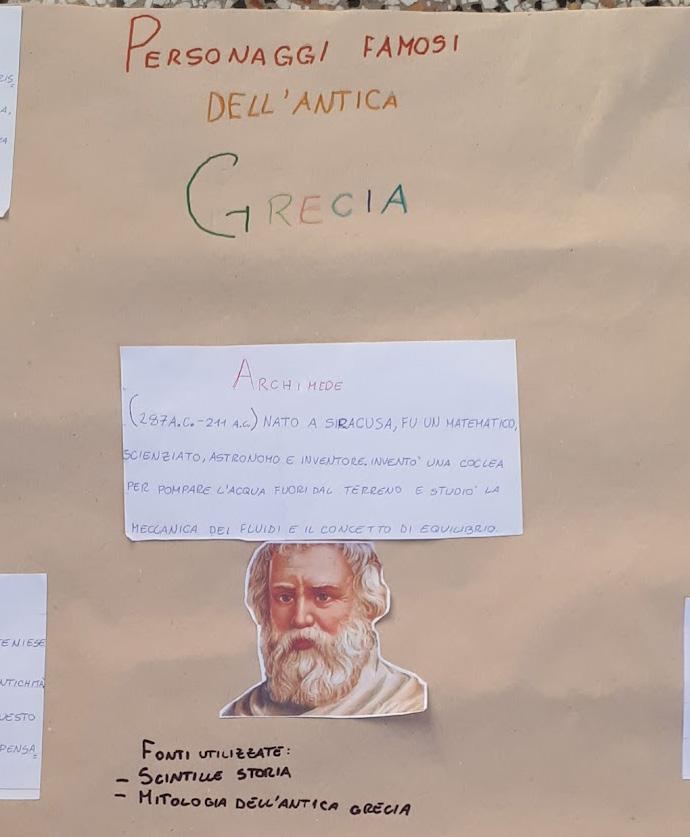 PERSONAGGI FAMOSI
DELL'ANTICA
GRECIA
ARCHIMEDE
(287A.C.-211 A.C.) NATO A SIRACUSA, FU UN MATEMATICO,
SCIENZIATO, ASTRONOMO E INVENTORE. INVENTO' UNA COCLEA
PER POMPARE L'ACQUA FUORI DAL TERRENO E STUDIO' LA
MECCANICA DEI FLUIDI E IL CONCETTO DI EQUILIBRIO.
ENIESE
NTICHITÀ
UESTO
PENSA
FONTI UTILIZZATE:
- SCINTILLE STORIA
- MITOLOGIA DELL'ANTICA GRECIA